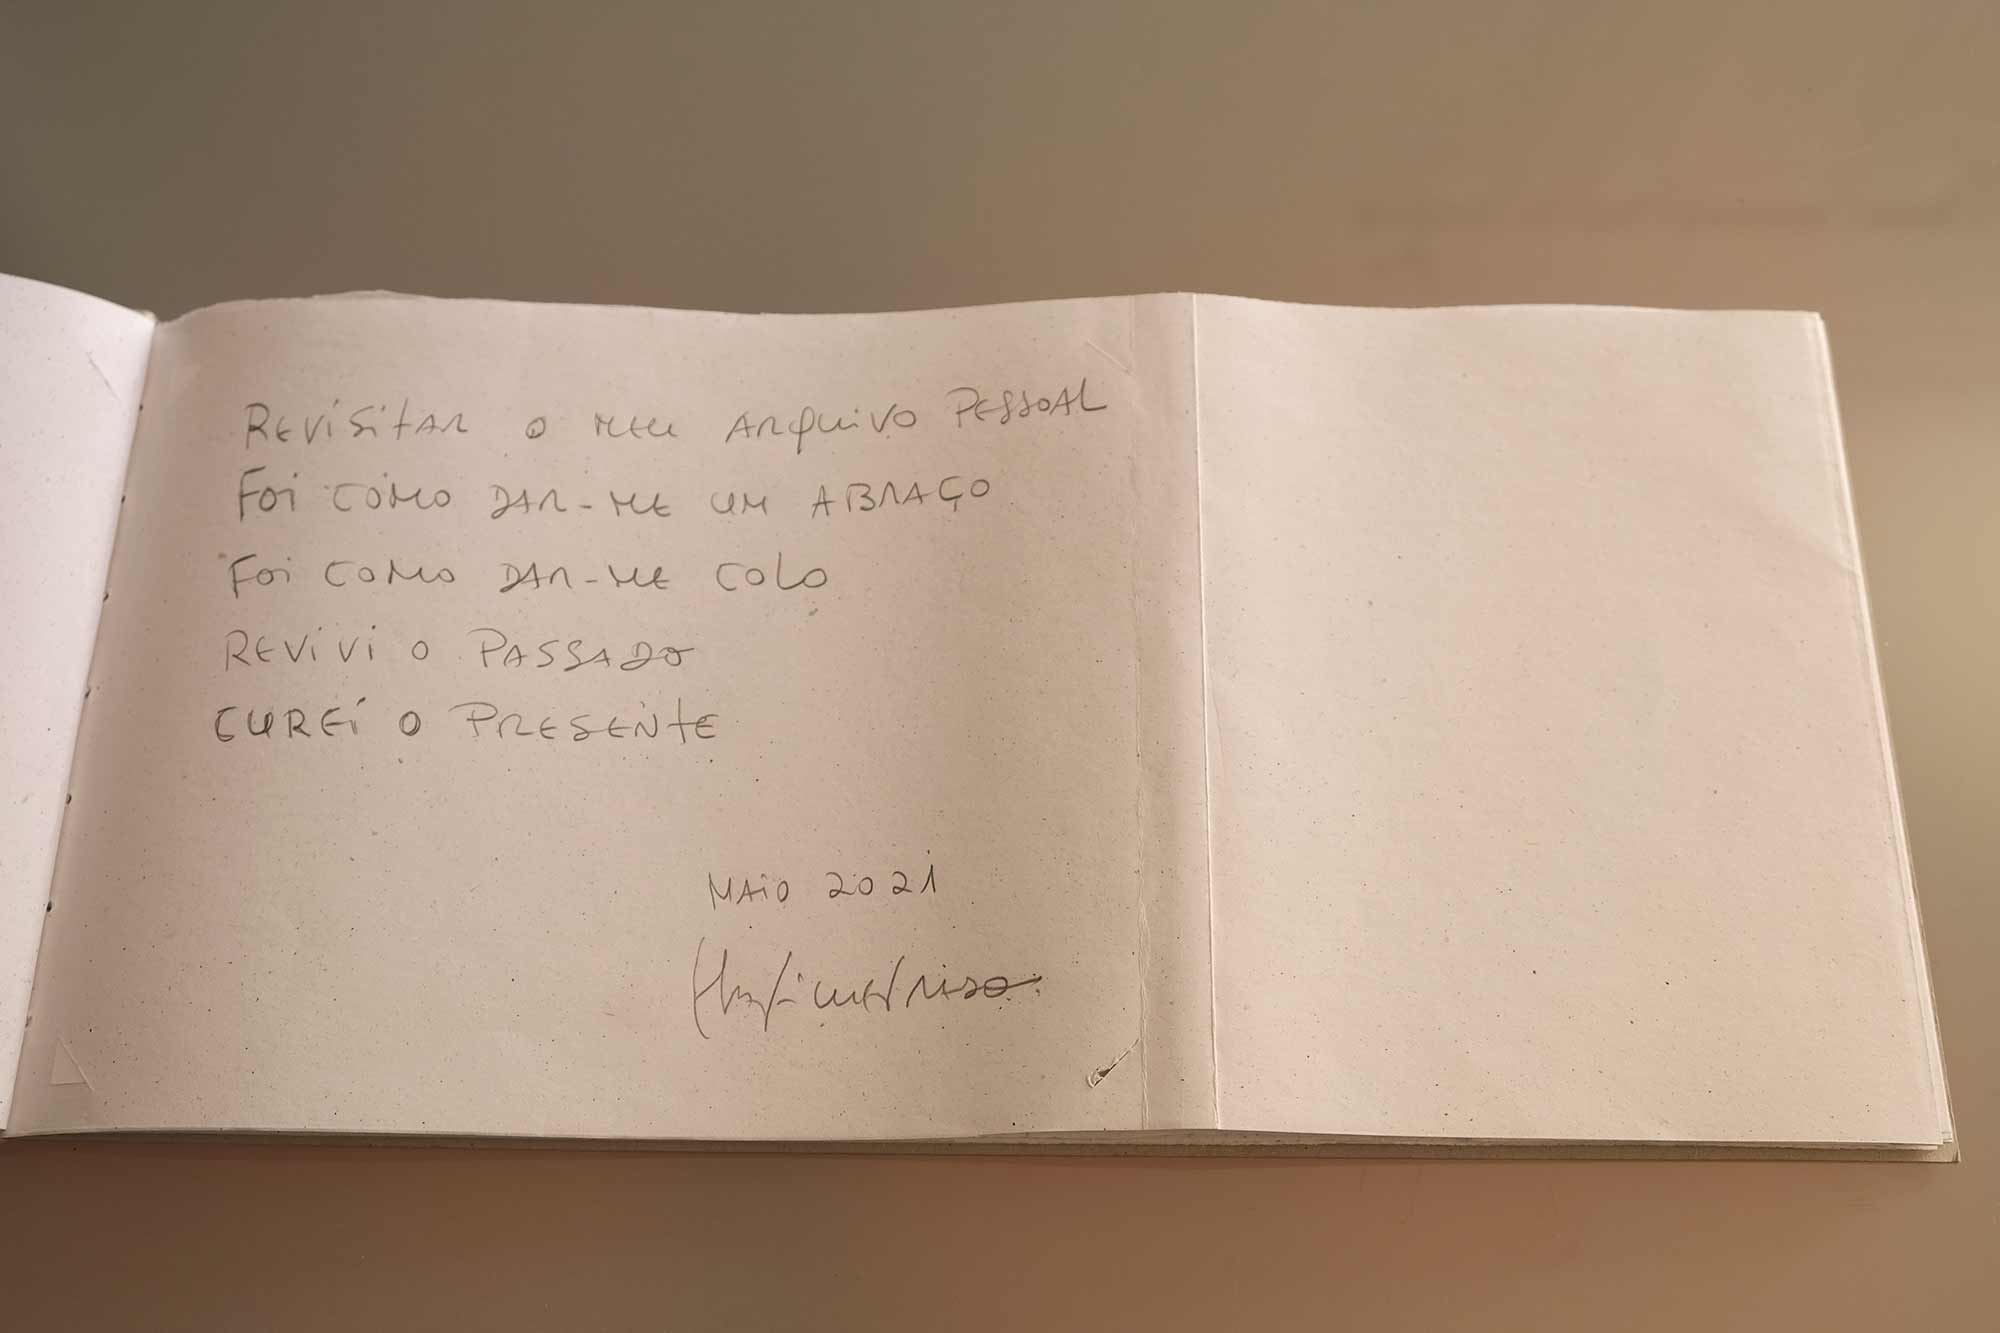 REVISITAR O MEU ARQUIVO PESSOAL
FOI COMO DAR-ME UM ABRAÇO
FOI COMO DAR-ME COLO
REVIVI O PASSADO
CUREI O PRESENTE
MAIO 2021